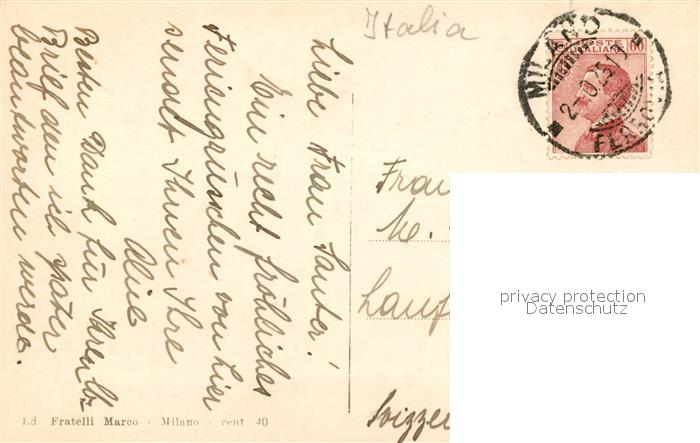 Italia
MILANO
2-10.25.17
FERROVIA
POSTE
ITALIANE
60
Liebe Frau Sauter!
Ein recht fröhliches
Feriengrüsschen von hier
sendet Ihnen Ihre
Alice
Besten Dank für Ihren lb.
Brief den ich später
beantworten werde.
Frau
M.
Lauf
Svizzer
privacy protection
Datenschutz
Ed. Fratelli Marco - Milano - cent 40